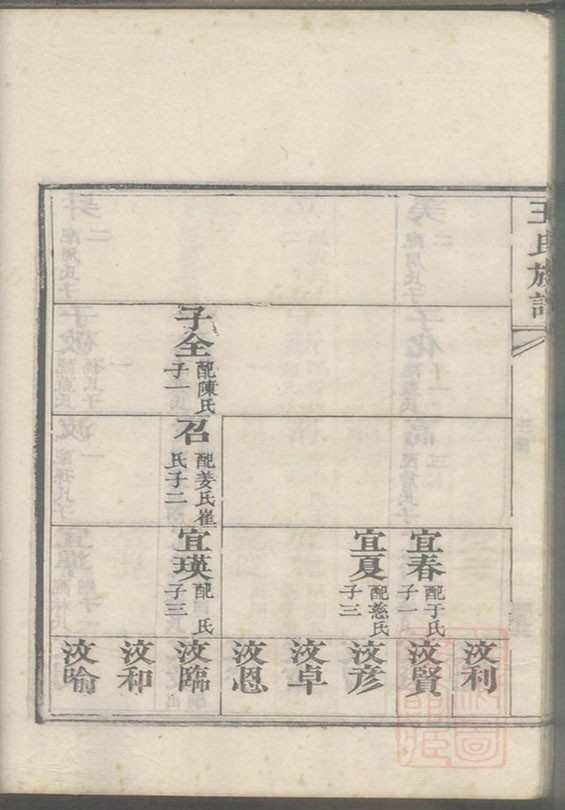 王氏族譜
子全 配陳氏
子一
召 配姜氏崔
氏子二
宜春 配于氏
子一
宜夏 配慈氏
子三
宜瑛 配 氏
子三
汶利
汶賢
汶彦
汶卓
汶恩
汶臨
汶和
汶喻